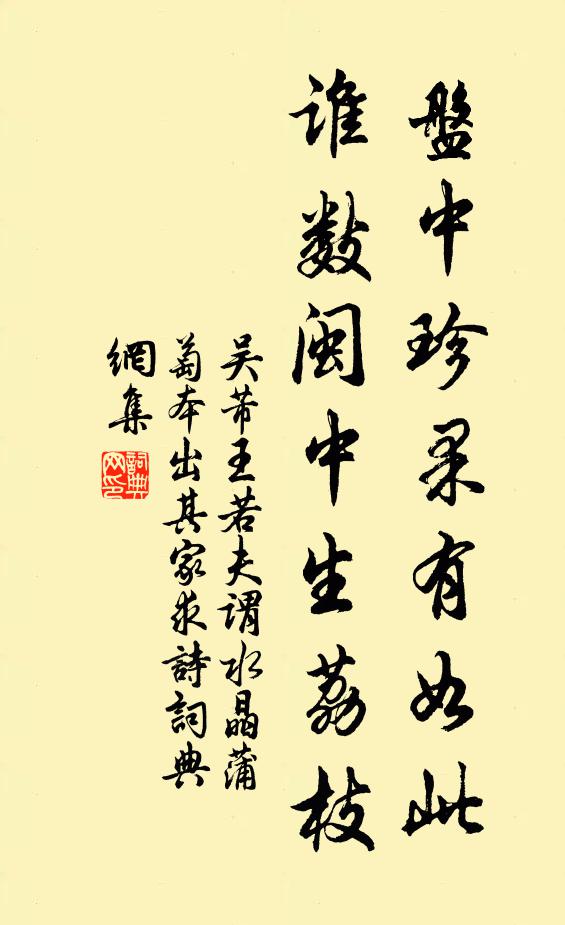 盤中珍果有如此
誰數閩中生荔枝
吴芾王若夫謂水晶蒲
萄本出其家求詩詞典
網集
詞典网印